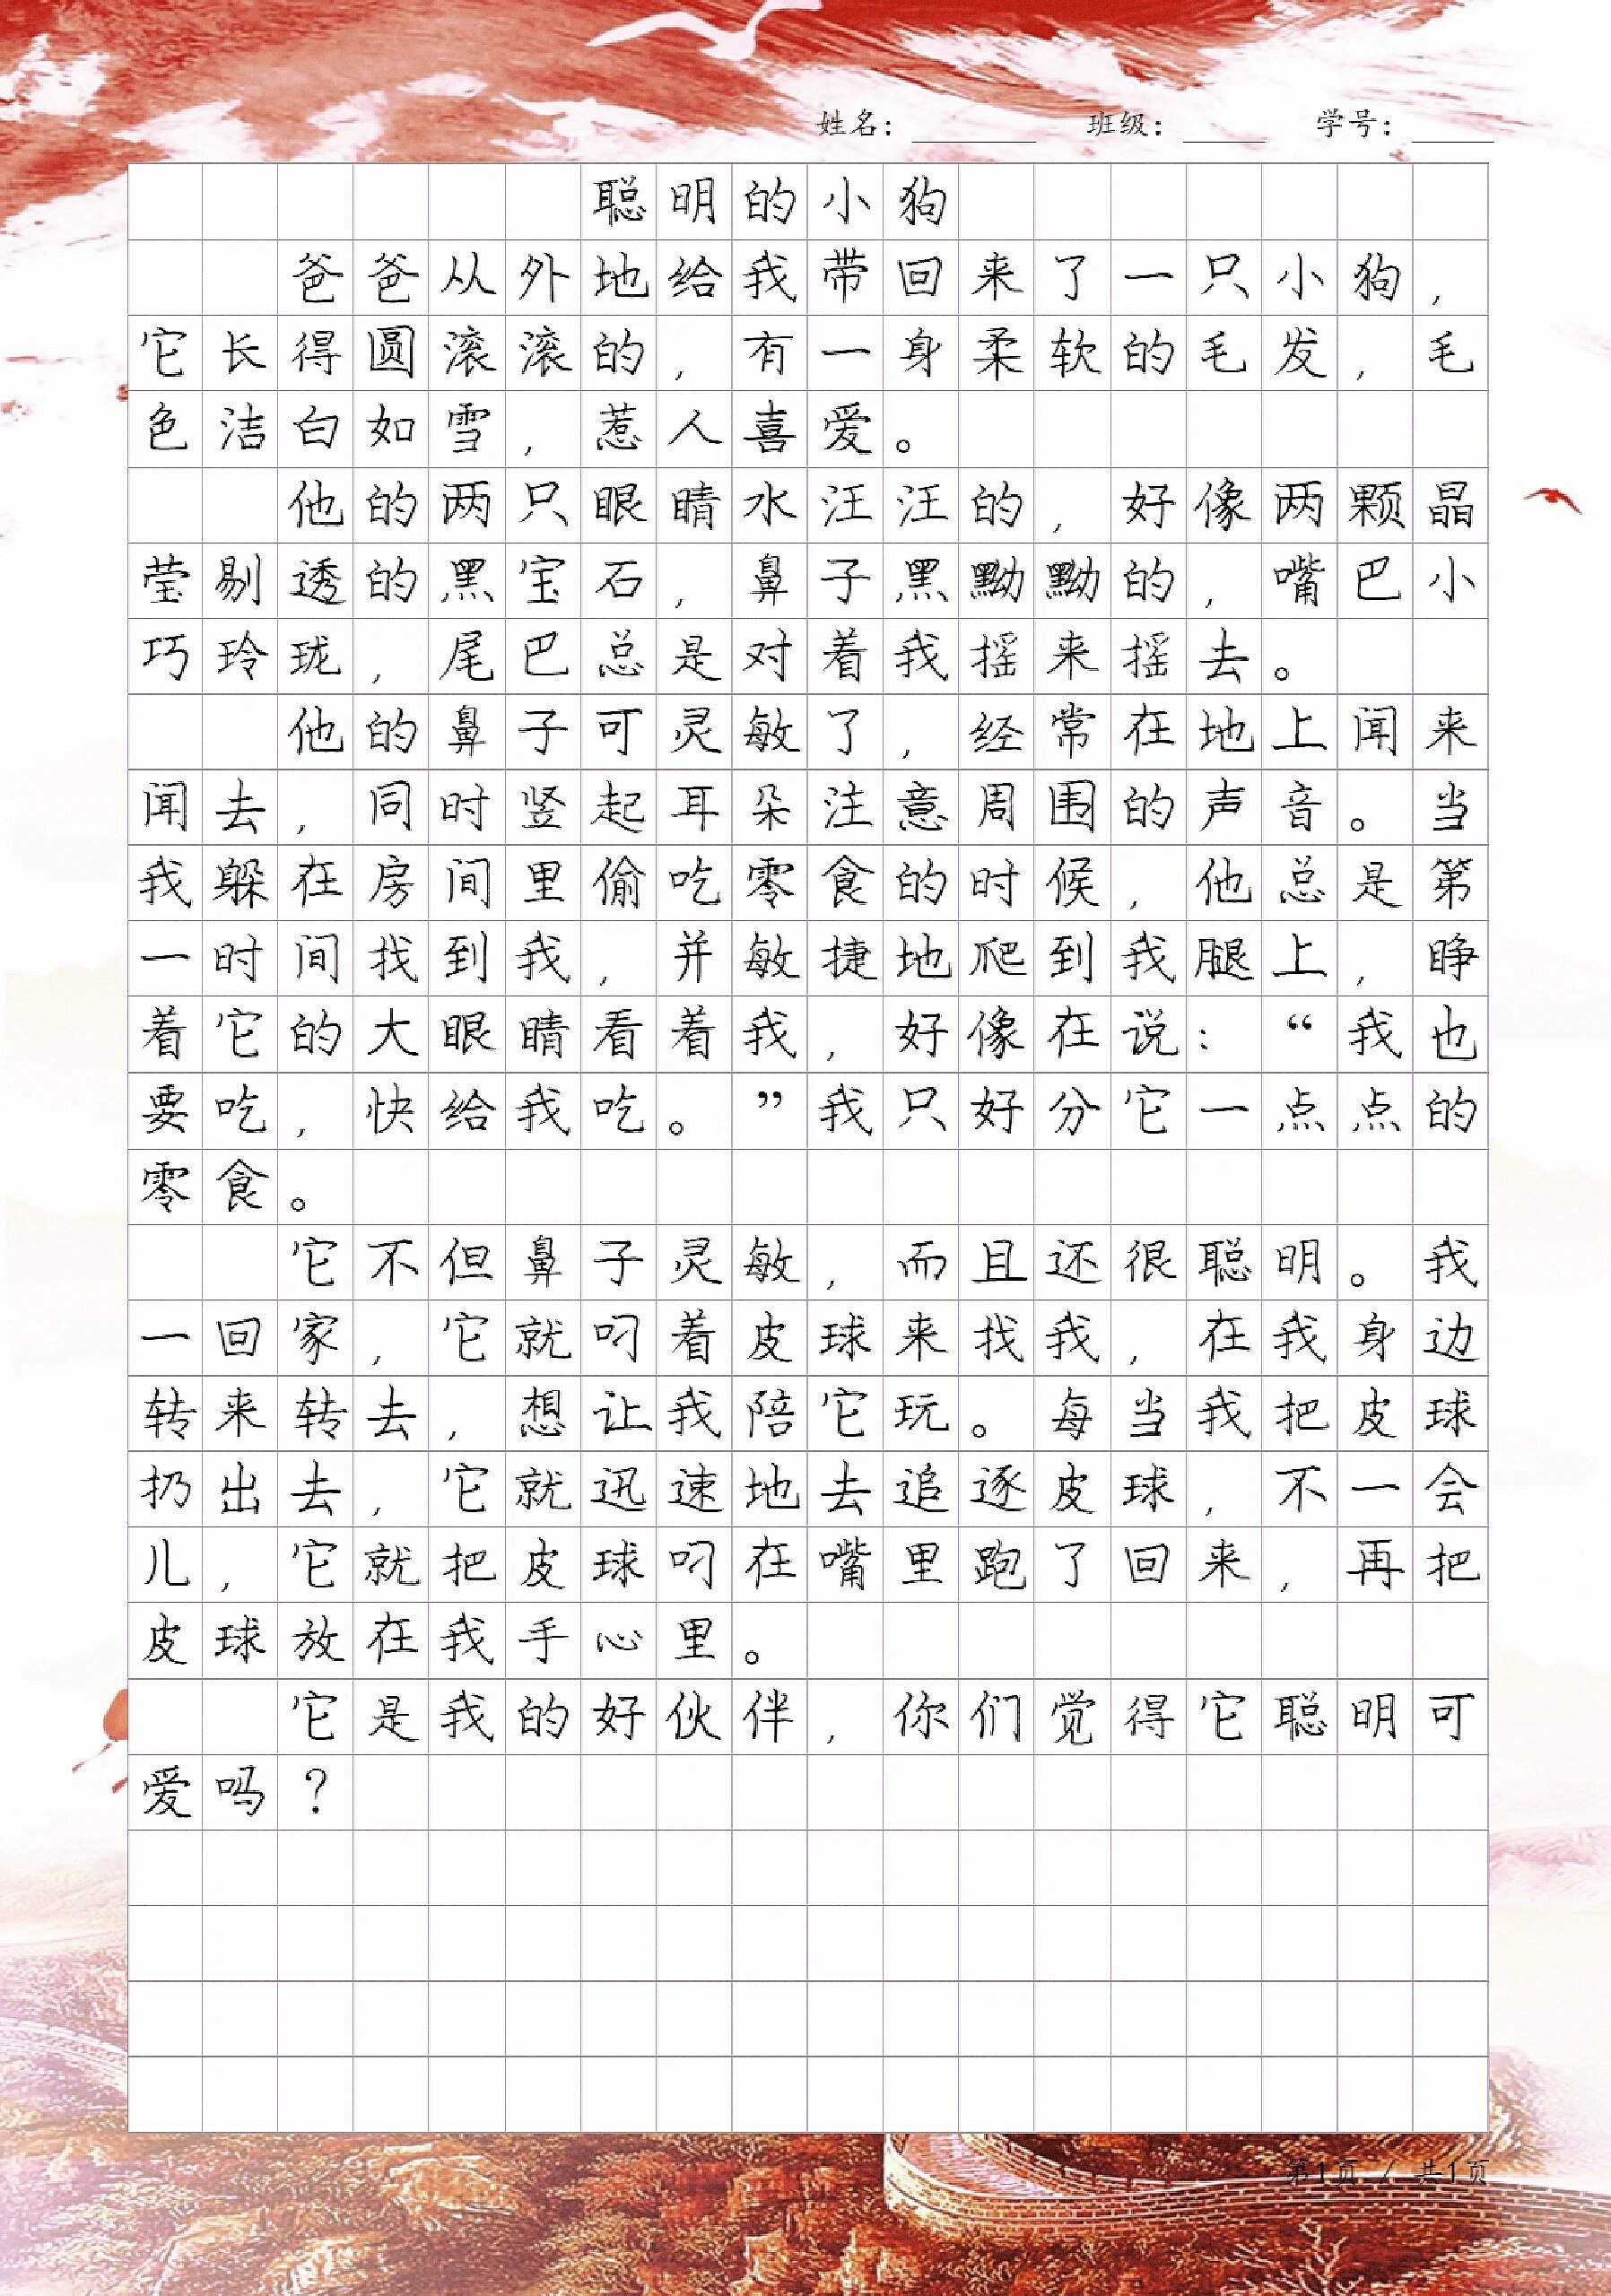 姓名： 班级： 学号：
聪明的小狗
爸爸从外地给我带回来了一只小狗，
它长得圆滚滚的，有一身柔软的毛发，毛
色洁白如雪，惹人喜爱。
他的两只眼睛水汪汪的，好像两颗晶
莹剔透的黑宝石，鼻子黑黝黝的，嘴巴小
巧玲珑，尾巴总是对着我摇来摇去。
他的鼻子可灵敏了，经常在地上闻来
闻去，同时竖起耳朵注意周围的声音。当
我躲在房间里偷吃零食的时候，他总是第
一时间找到我，并敏捷地爬到我腿上，睁
着它的大眼睛看着我，好像在说：“我也
要吃，快给我吃。”我只好分它一点点的
零食。
它不但鼻子灵敏，而且还很聪明。我
一回家，它就叼着皮球来找我，在我身边
转来转去，想让我陪它玩。每当我把皮球
扔出去，它就迅速地去追逐皮球，不一会
儿，它就把皮球叼在嘴里跑了回来，再把
皮球放在我手心里。
它是我的好伙伴，你们觉得它聪明可
爱吗？
第1页 / 共1页